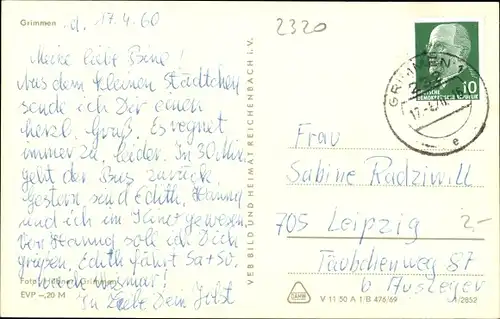 Grimmen d. 17.4.60
2320
Meine liebe Bine!
Aus dem kleinen Städtchen
sende ich Dir einen
herzl. Gruß. Es regnet
immerzu, leider. In 30 Min.
geht der Bus zurück.
Gestern sind Edith, Hannq
und ich im Kino gewesen.
Von Hannq soll ich Dich
grüßen, Edith fährt Sa+So.
nach Wismar!
In Liebe Dein Jobst
Grimmen
EVP -,20 M
VEB BILD UND HEIMAT REICHENBACH i. V.
GRIMMEN 1
232
e
DEMOKRATISCHE REPUBLIK
10
Frau
Sabine Radziwill
705 Leipzig
Täubchenweg 87
b Auszeger
2.-
V 11 50 A 1/B 476/69
/2852